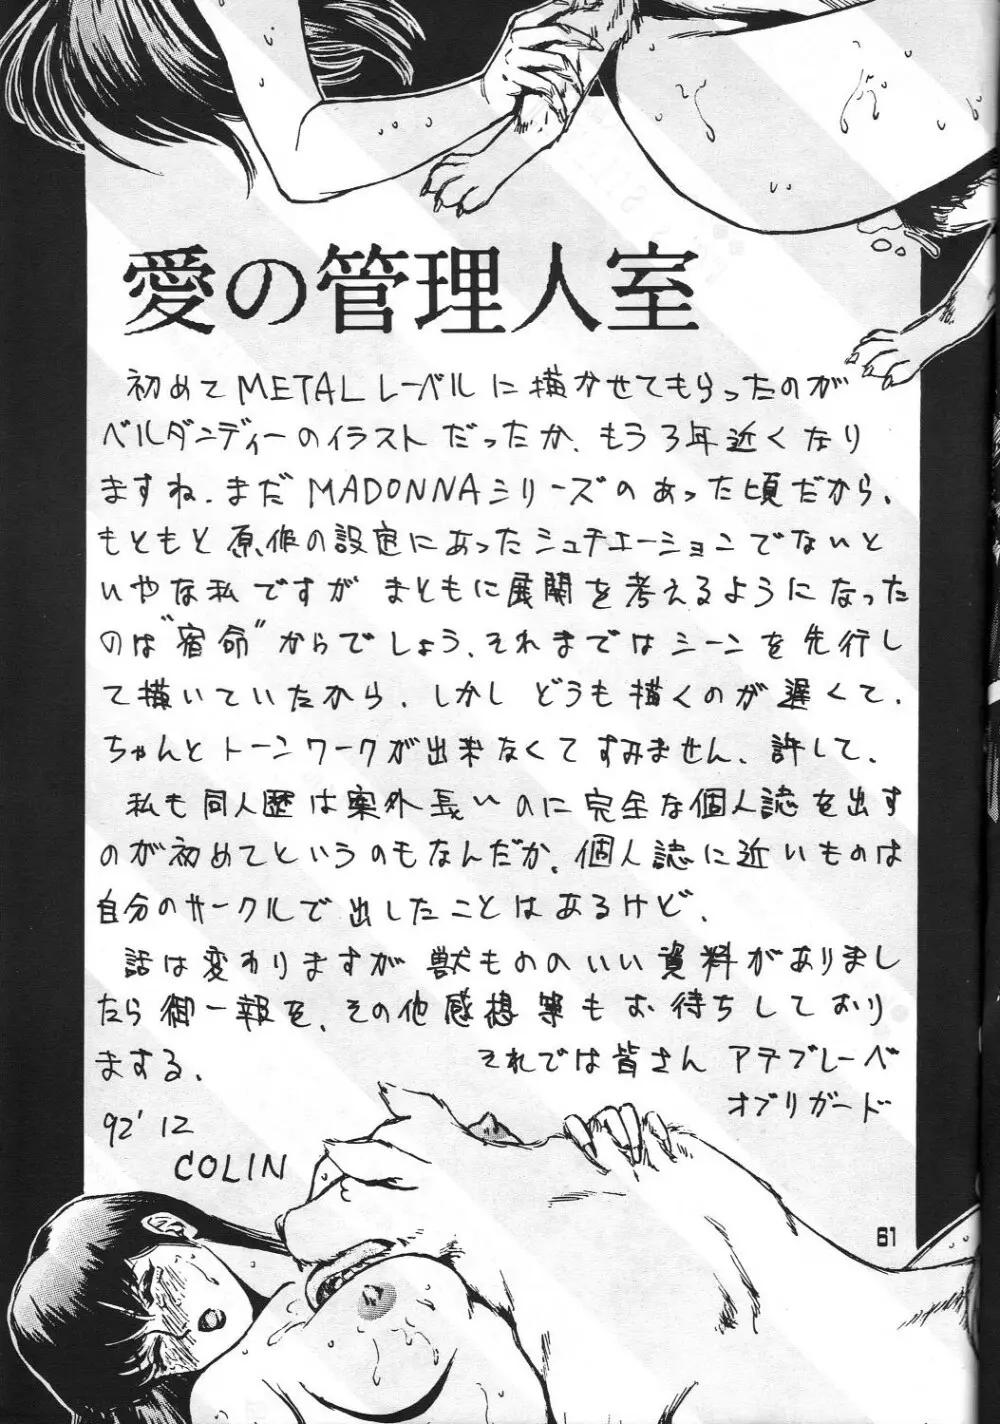 愛の管理人室
初めてMETALレーベルに描かせてもらったのが
ベルダンディーのイラストだったか、もう3年近くなり
ますね、まだMADONNAシリーズのあった頃だから、
もともと原作の設定にあったシュチエーションでないと
いやな私ですが まともに展開を考えるようになった
のは"宿命"からでしょう、それまではシーンを先行し
て描いていたから、しかし どうも描くのが遅くて、
ちゃんとトーンワークが出来なくてすみません、許して、
私も同人歴は案外長いのに完全な個人誌を出す
のが初めてというのもなんだか、個人誌に近いものは
自分のサークルで出したことはあるけど、
話は変わりますが 獣もののいい資料がありまし
たら御一報を、その他感想等もお待ちしており
まする、
それでは皆さん アテブレーベ
オブリガード
92'12
COLIN
61